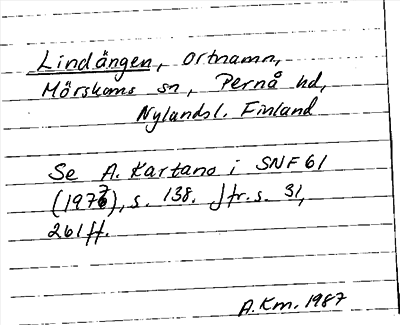 Lindängen, ortnamn,
Mörskoms sn, Pernå hd,
Nylandsl. Finland
Se A. Kartano i SNF 61
(1977), s. 138. Jfr. s. 31,
261 ff.
A.Km. 1987